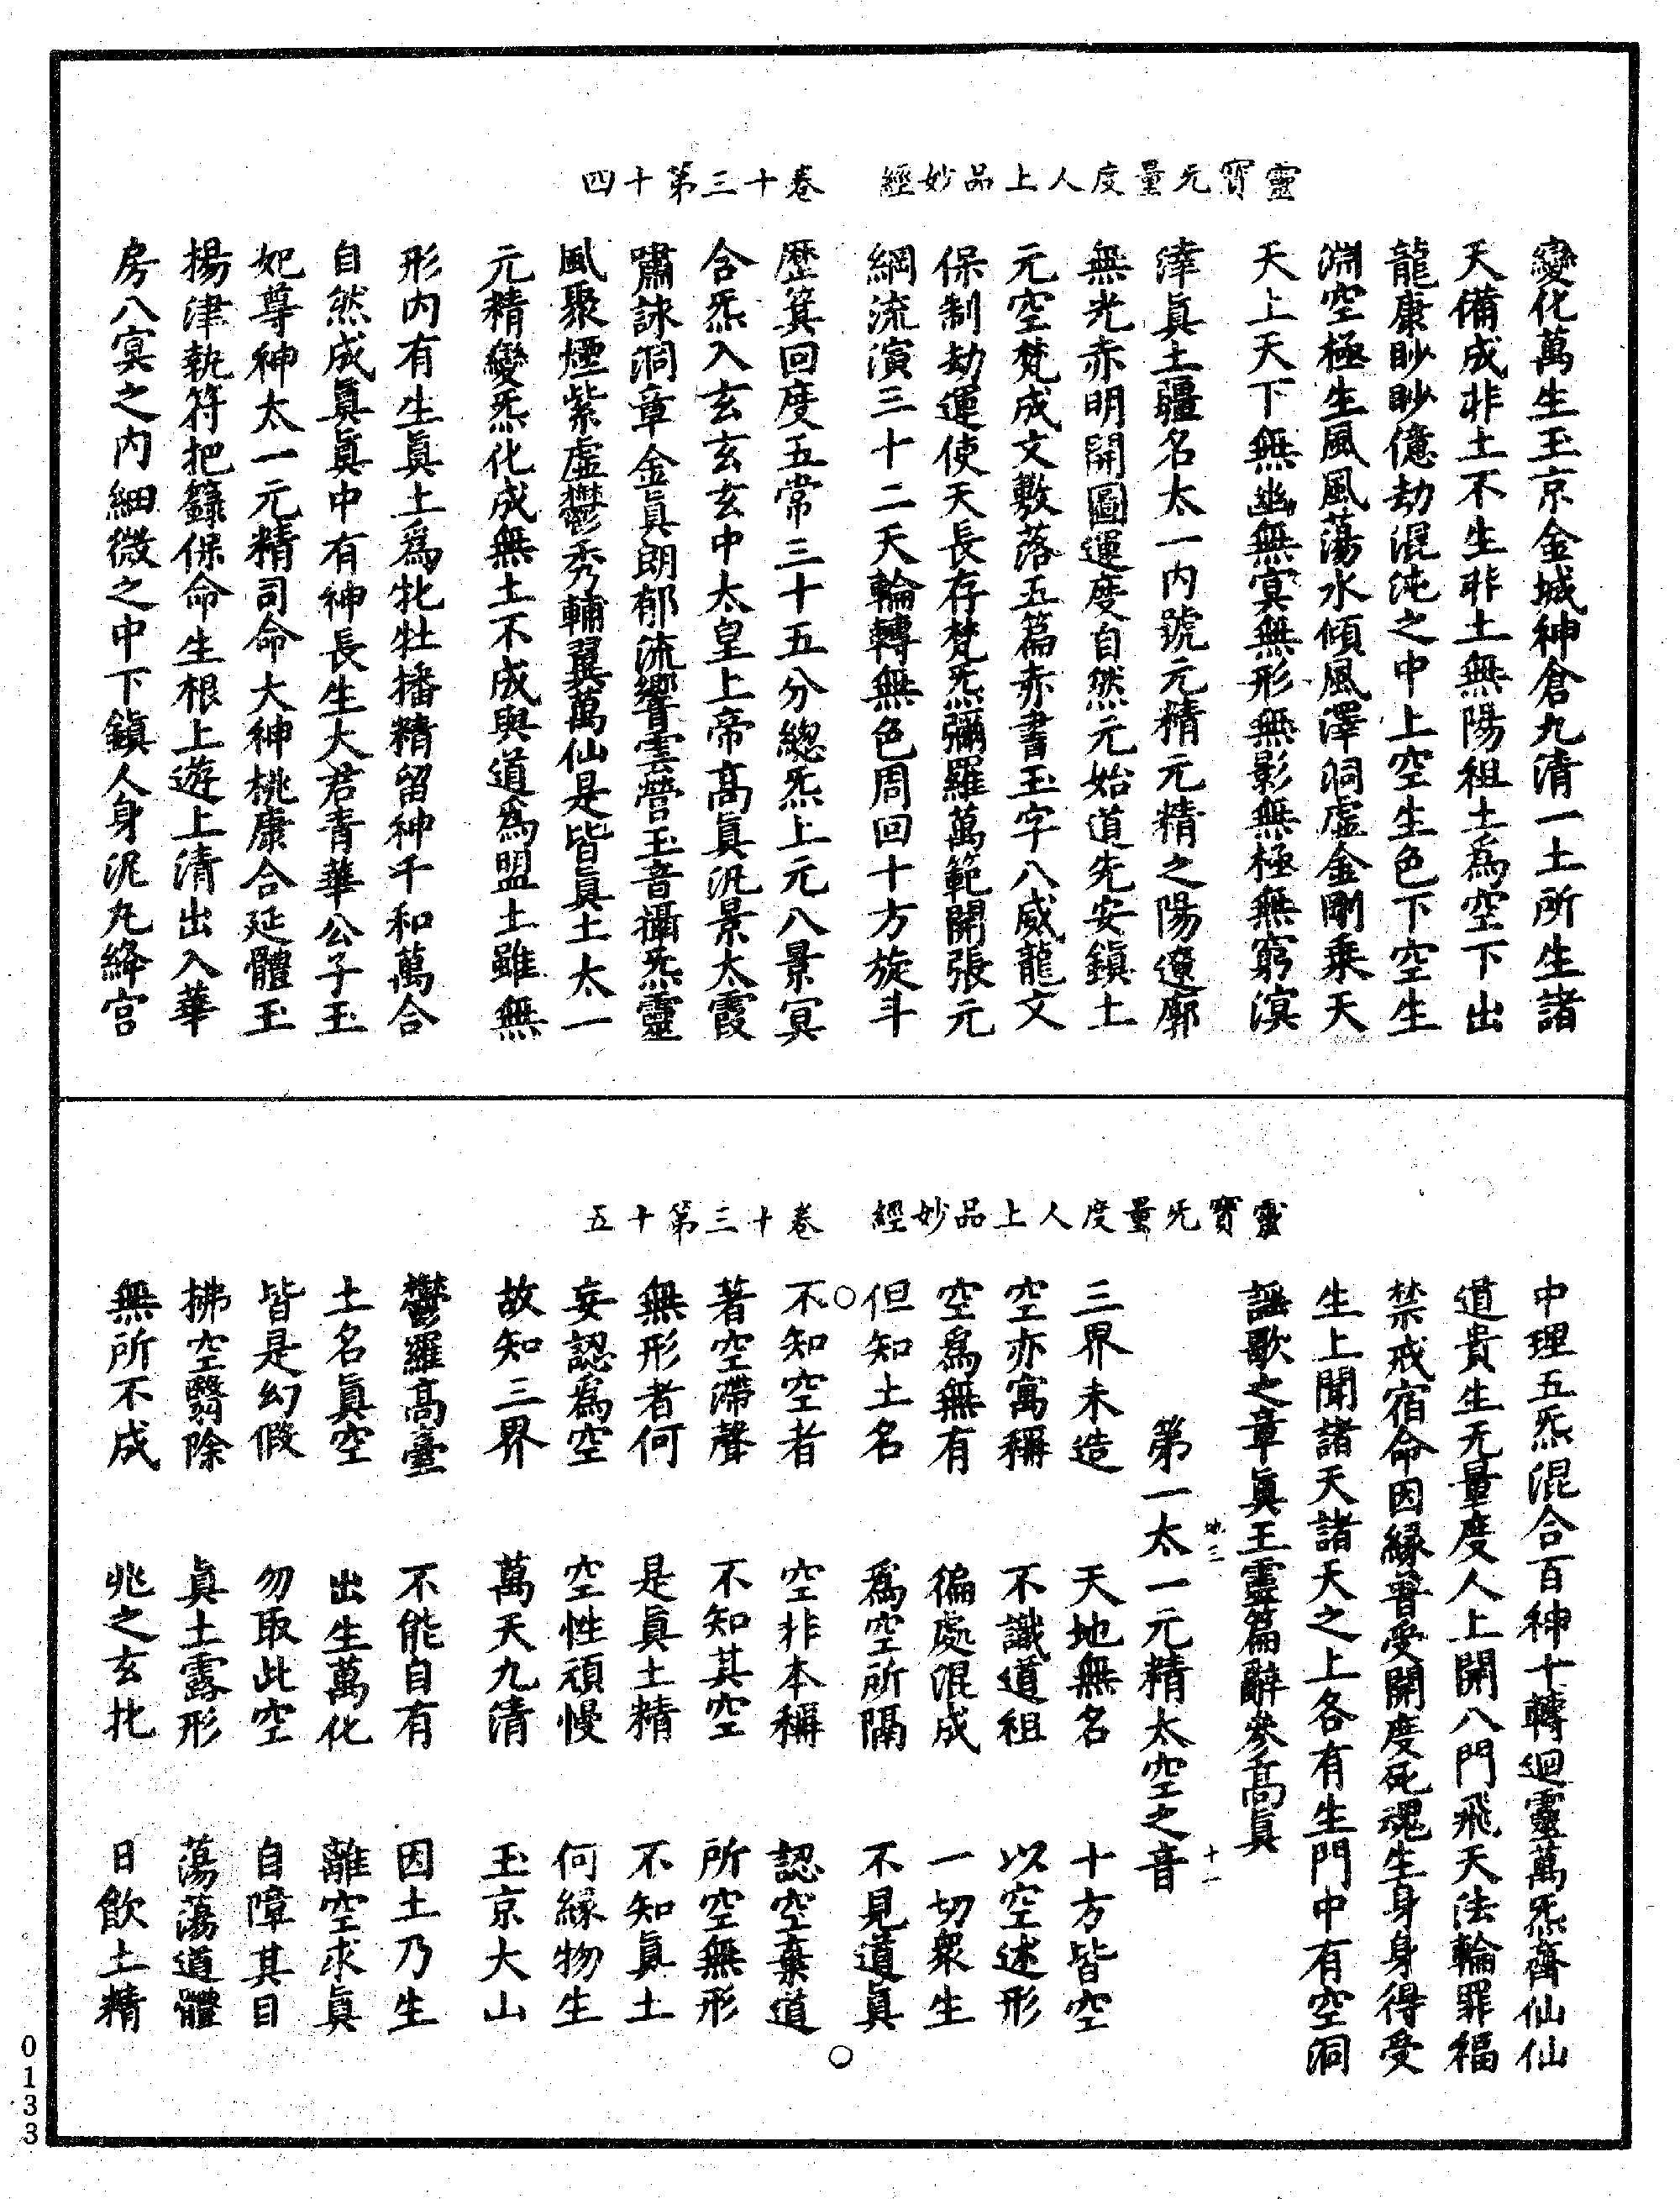 靈寶无量度人上品妙經　卷十三第十四
變化萬生玉京金城神倉九清一土所生諸
天備成非土不生非土無陽祖土爲空下出
龍康眇眇億劫混沌之中上空生色下空生
淵空極生風風蕩水傾風澤洞虛金剛乗天
天上天下無幽無冥無形無影無極無窮溟
涬眞土疆名太一内號元精元精之陽遼廓
無光赤明開圖運度自然元始道先安鎮土
元空梵成文敷落五篇赤書玉字八威龍文
保制劫運使天長存梵炁彌羅萬範開張元
綱流演三十二天輪轉無色周回十方旋斗
歷箕回度五常三十五分總炁上元八景冥
合炁入玄玄玄中太皇上帝高眞汎景太霞
嘯詠洞章金眞朗郁流響雲營玉音攝炁靈
風聚煙紫虛鬱秀輔翼萬仙是皆眞土太一
元精變炁化成無土不成與道爲盟土雖無
形内有生眞上爲牝牡播精留神千和萬合
自然成眞眞中有神長生大君青華公子玉
妃尊神太一元精司命大神桃康合延體玉
揚津執符把籙保命生根上遊上清出入華
房八冥之内細微之中下鎮人身泥丸絳宮
靈寶无量度人上品妙經　卷十三第十五
中理五炁混合百神十轉迴靈萬炁齊仙仙
道貴生无量度人上開八門飛天法輪罪福
禁戒宿命因緣普受開度死魂生身身得受
生上聞諸天諸天之上各有生門中有空洞
謡歌之章眞王靈篇辭參高眞
地三　十一
第一太一元精太空之音
三界未造　天地無名　十方皆空
空亦寓稱　不識道祖　以空述形
空爲無有　徧處混成　一切衆生
但知土名　爲空所隔　不見道眞
不知空者　空非本稱　認空棄道
著空滯聲　不知其空　所空無形
無形者何　是眞土精　不知眞土
妄認爲空　空性頑慢　何緣物生
故知三界　萬天九清　玉京大山
鬱羅髙臺　不能自有　因土乃生
土名眞空　出生萬化　離空求眞
皆是幻假　勿取此空　自障其目
拂空翳除　眞土露形　蕩蕩道體
無所不成　兆之玄牝　日飲土精
0133